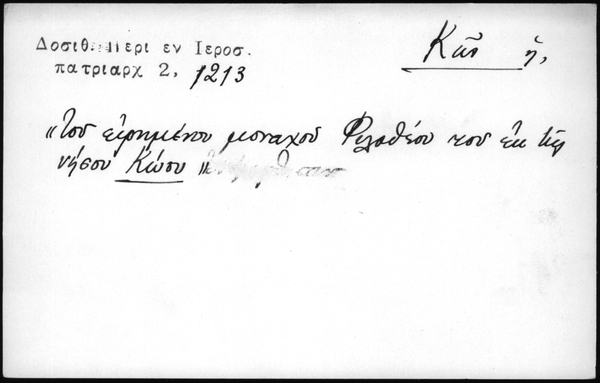 Δοσιθ. Περι εν Ιεροσ.
πατριαρχ 2, 1213
Κῶς ἡ,
"Του εἰρημένου μοναχοῦ Φιλοθέου του ἐκ τῆς
νήσου Κώσου"